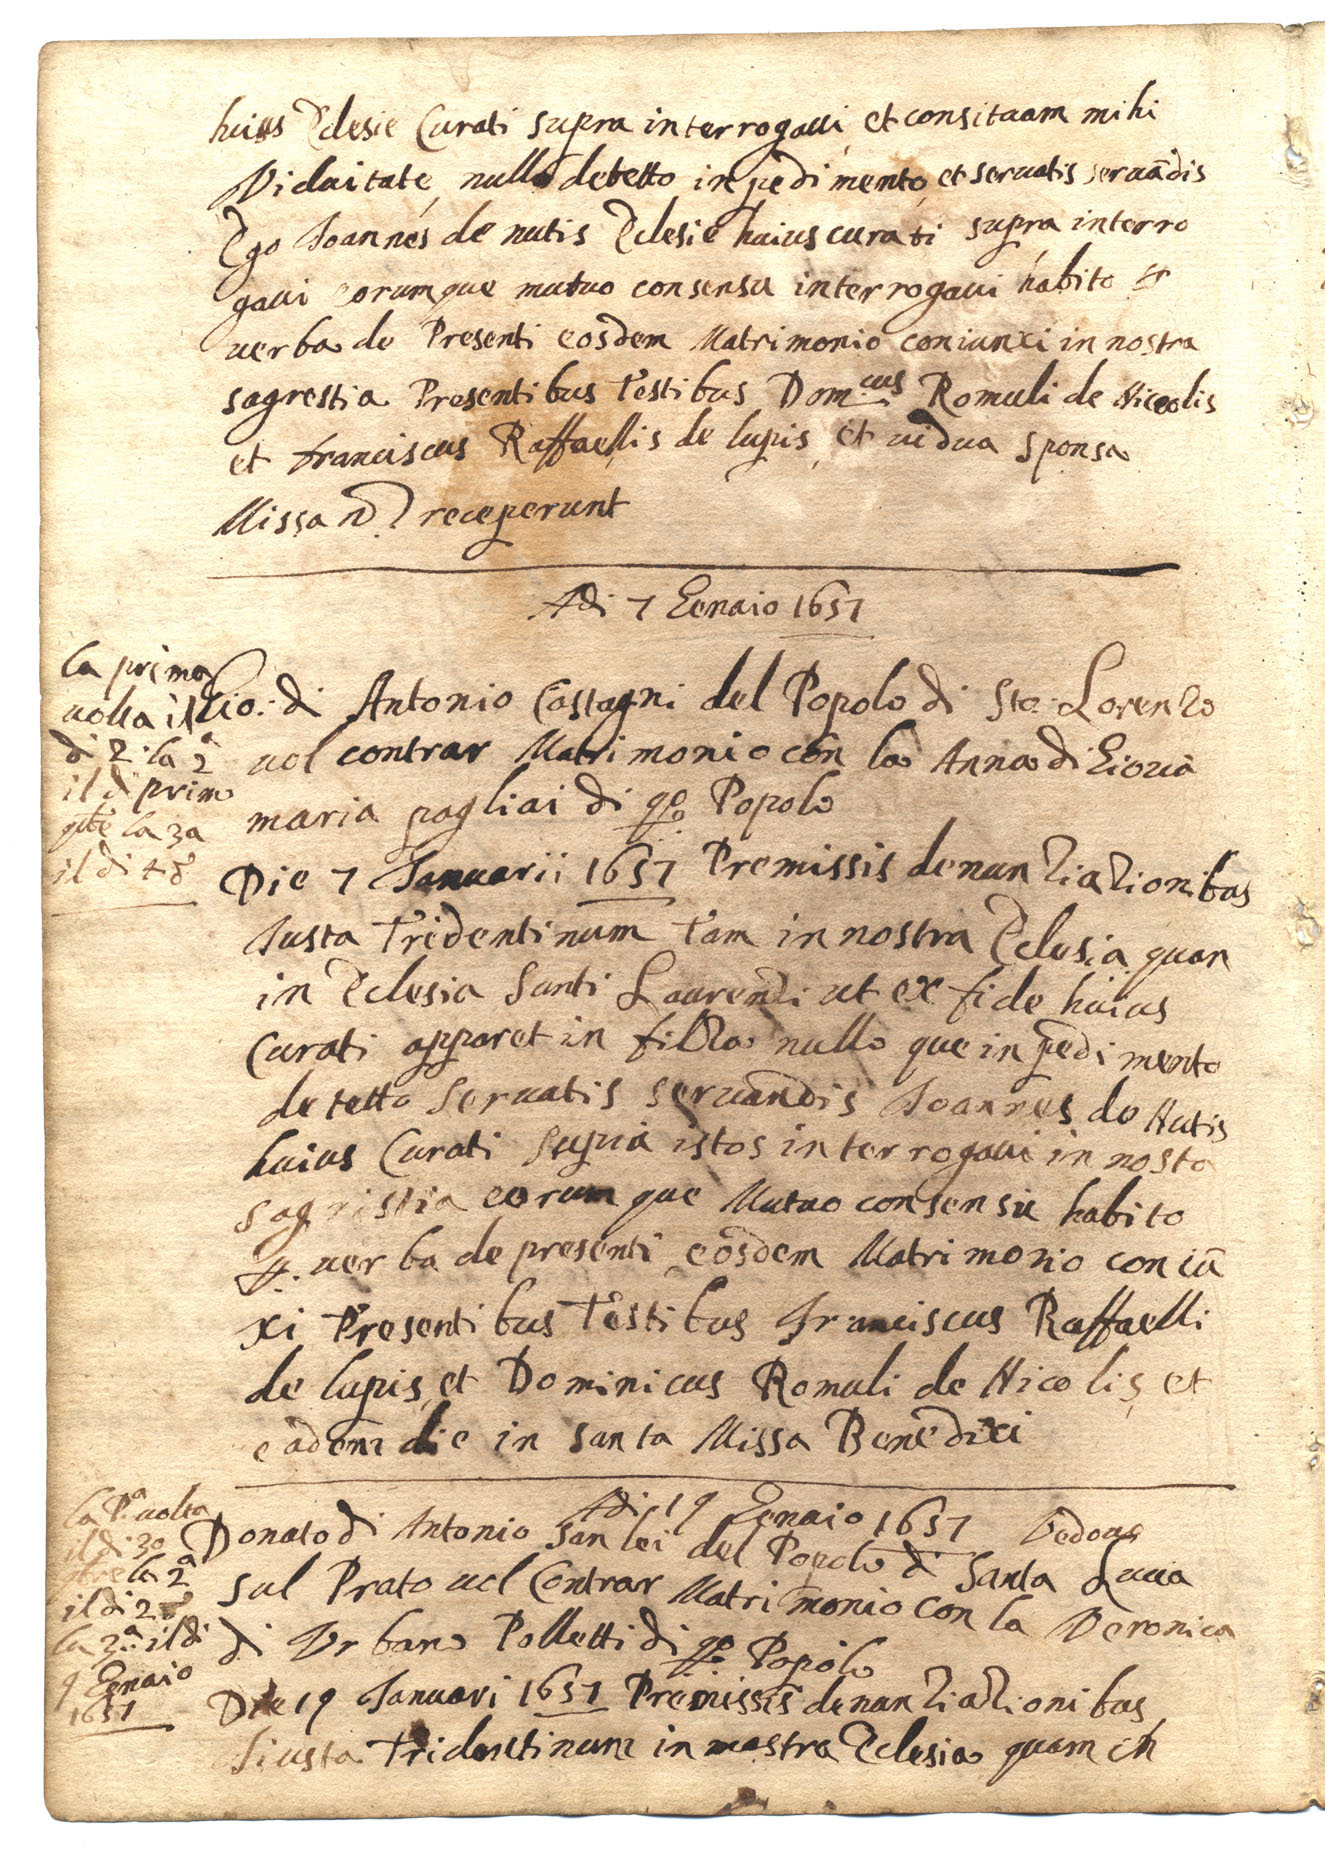 huius Eclesie Curati supra interrogaui et consitaam mihi
Viduitate, nullo detetto inpedimento et seruatis seruãdis
Ego Joannes de nutis Eclesie huius curati supra interro
gaui eorumque mutuo consensu interrogaui habito
uerba de Presenti eosdem Matrimonio coniunxi in nostra
sagrestia Presentibus Testibus Dom.cus Romuli de Niccolis
et franciscus Raffaellis de lupis et uidua sponsa
Missa nõ receperunt
Adi 7 Genaio 1657
la prima
uolta il
di 2 la 2a
il di primo
la 3a
il di
Gio: di Antonio Castagni del Popolo di Sto Lorenzo
uol contrar Matrimonio con la Anna di Giouã
maria pagliai di qo Popolo
Die 7 Januarii 1657 Premissis denunziazionibus
Justa Tridentinum tam in nostra Eclesia quan
in Eclesia Santi Laurenzi ut ex fide huius
Curati apparet in filza nullo que inpedimento
detetto seruatis seruandis Joannes de Nutis
huius Curati supra istos interrogaui in nosta
sagristia eorum que Mutuo consensu habito
uerba de presenti eosdem Matrimonio coniũ
xi Presentibus Testibus Franciscus Raffaelli
de lupis et Dominicus Romuli de Nicolis et
eadem die in santa Missa Benedixi
la Pa uolta
il di 30
la 2a
il di 2
la 3a il di
9 Genaio
1657
Adi 19 Genaio 1657 Vedoua
Donato di Antonio Sanlei del Popolo di Santa Lucia
sul Prato uol Contrar Matrimonio con la Veronica
di Vrbano Polletti di qo Popolo
Die 19 Januari 1657 Premissis denunziazionibus
Giusta Tridentinum in nostra Eclesia quam in